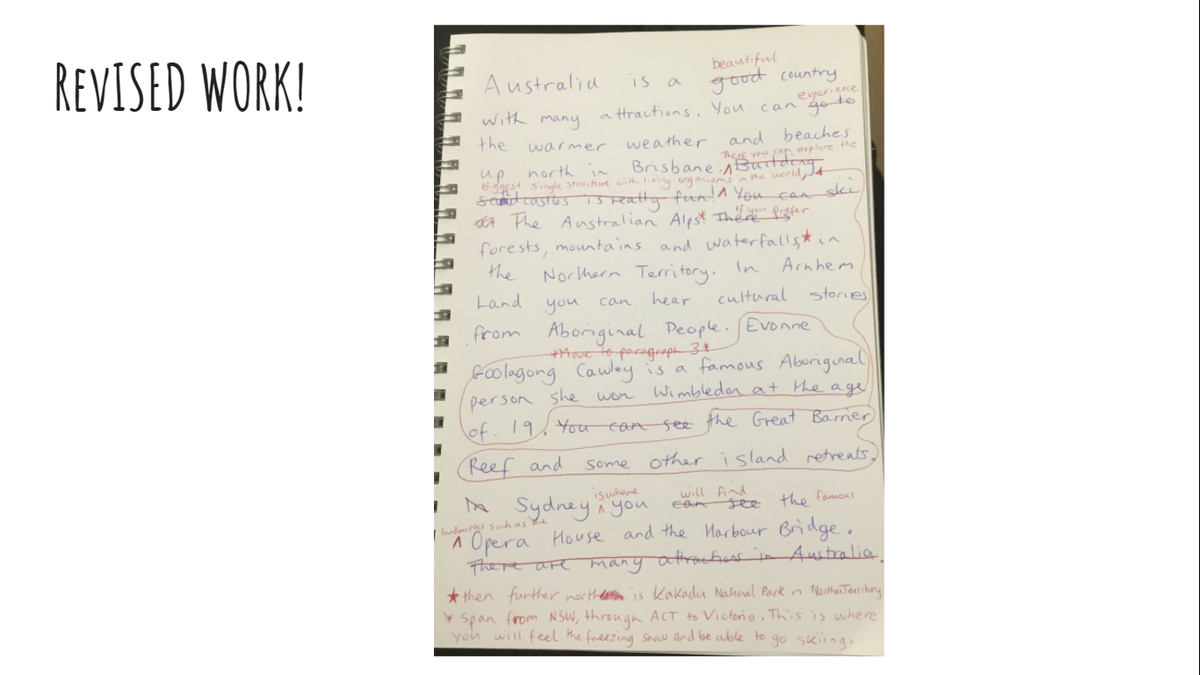 REVISED WORK!
beautiful
Australia is a good country
experience
with many attractions. You can go to
the warmer weather and beaches
There you can explore the
up north in Brisbane. ^ Building
Biggest single structure with living organisms in the world,
sandcastles is really fun! ^ You can ski
If you prefer
The Australian Alps* There is
forests, mountains and waterfalls,★ in
the Northern Territory. In Arnhem
Land you can hear cultural stories
from Aboriginal People. Evonne
*Move to paragraph 3*
Goolagong Cawley is a famous Aboriginal
person she won Wimbledon at the age
of 19. You can see the Great Barrier
Reef and some other island retreats.
is where will find famous
In Sydney ^ you can see the
landmarks such as the
^ Opera House and the Harbour Bridge.
There are many attractions in Australia.
★ then further north is Kakadu National Park in Northern Territory
* Span from NSW, through ACT to Victoria. This is where
you will feel the freezing snow and be able to go skiing.